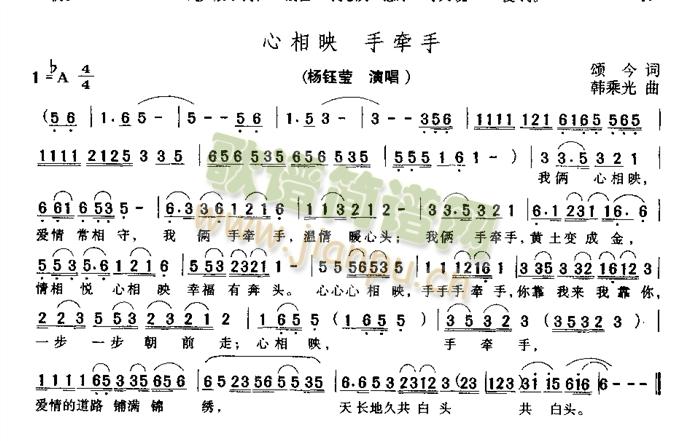 心相映 手牵手
1=♭A 4/4
(杨钰莹 演唱)
颂今 词
韩乘光 曲
(5 6 | 1·6 5 - 5 6 | 3 - - 3 5 6 | 1111 121 6165 565
1111 2125 3 3 5 | 656 535 1235 | 555 1 6 1 - ) | 3 3·5 3 2 1
我俩 心相映,
661 6535 - | 6·3 361 216 | 113212 - | 33·5321 | 6·1231 16·6
爱情 常相守, 我 俩 手牵手, 温情 暖心头; 我俩 手牵手, 黄土变成金,
553 5·6 1216 | 5532321 - | 5556535 | 1112161 | 335332 16123
情相 悦 心相映 幸福有奔头。 心心心相映, 手手手牵手, 你靠我来我靠你,
2 2 3 523 535 3 2 | 1 6 5 5 (1 6 5 5) | 3 5 3 2 (3 5 3 2)
一步 一步 朝 前 走; 心相映, 手牵手,
1111165335 665 | 6523556 5535 | 6·65 3212 3 (23 | 123)31 15616 | 6 - - - ‖
爱情的道路 铺满 锦 绣, 天长地久共白头 共 白头。
歌谱简谱网
www.jianpu.cn